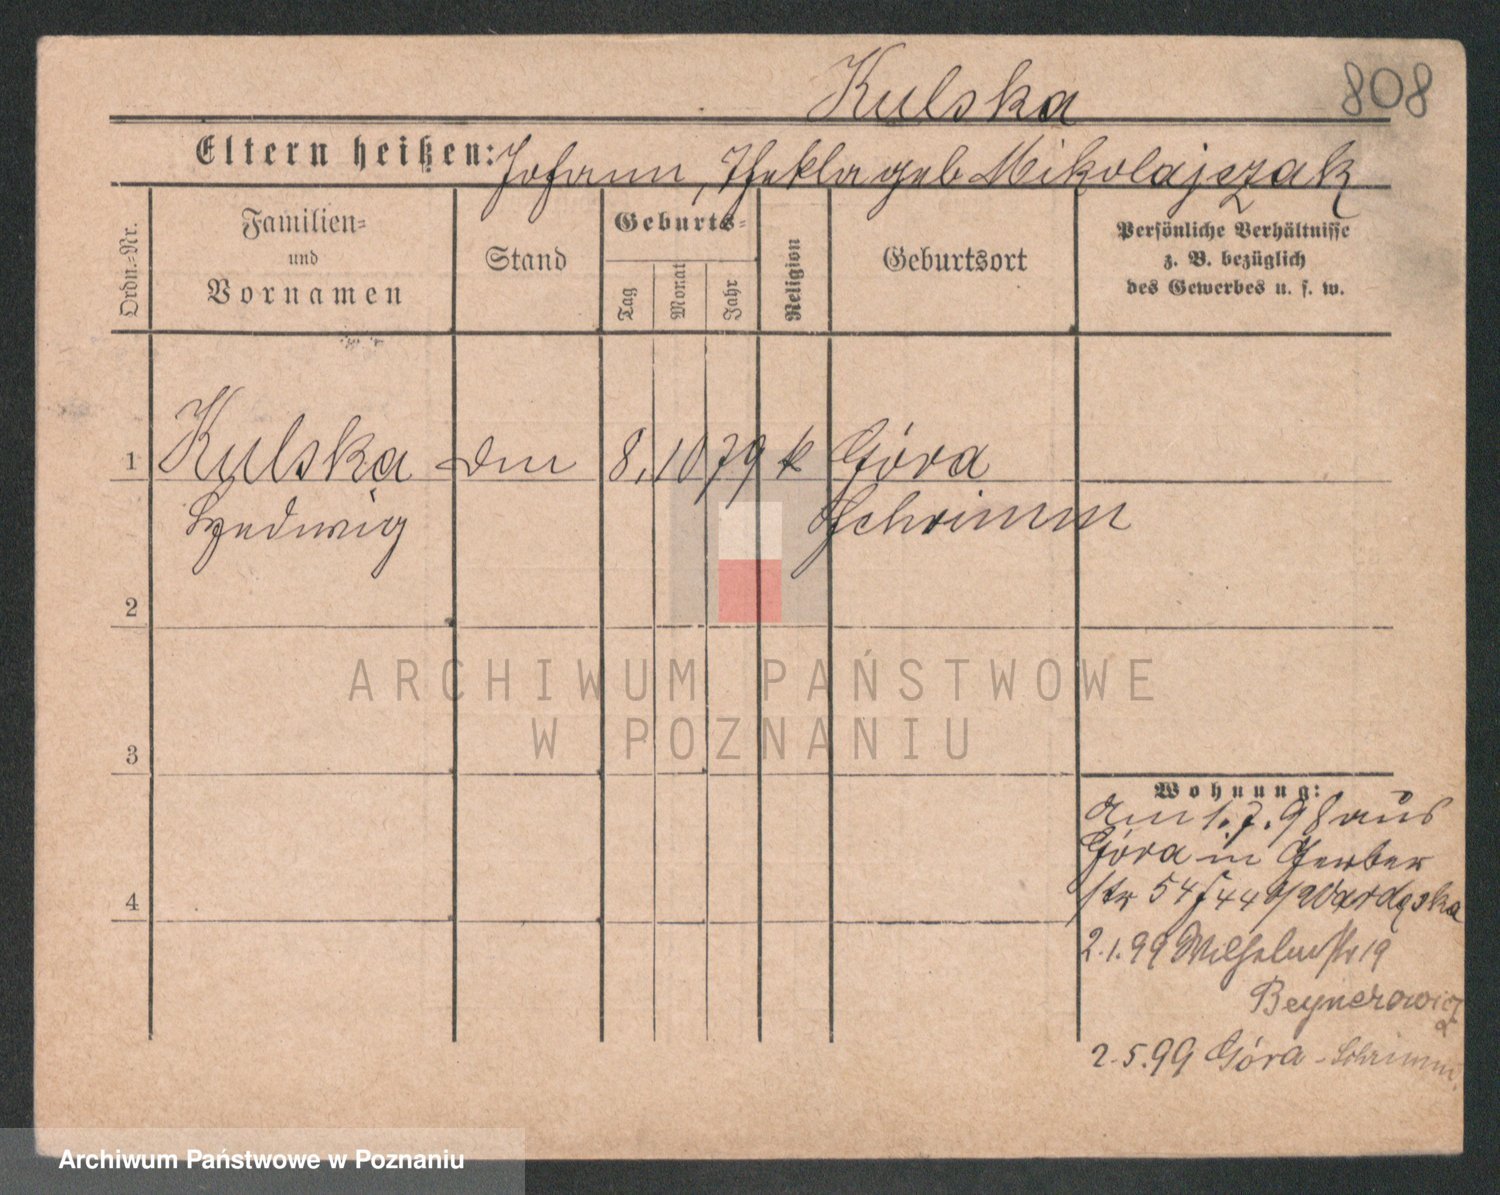 Kulska
808
Eltern heißen: Johann, Thekla geb Mikolajczak
Ordn.-Nr.
Familien-
und
Vornamen
Stand
Geburts-
Tag
Monat
Jahr
Religion
Geburtsort
Persönliche Verhältnisse
z. B. bezüglich
des Gewerbes u. s. w.
1
Kulska
8. 10 79 k Góra
Hedwig
Schrimm
2
ARCHIWUM PAŃSTWOWE
W POZNANIU
3
Wohnung:
am 1.7.98 aus
Góra in Gerber
str 54
4
2.1.99 Wilhelmstr 19
2.5.99 Góra - Schrimm.
Archiwum Państwowe w Poznaniu